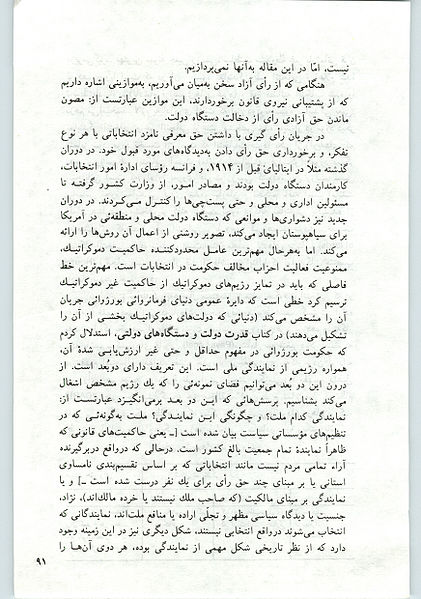 نیست، امّا در این مقاله به‌آنها نمی‌پردازیم.
هنگامی که از رأی آزاد سخن به‌میان می‌آوریم، به‌موازینی اشاره داریم
که از پشتیبانی نیروی قانون برخوردارند، این موازین عبارتست از: مصون
ماندن حق آزادی رأی از دخالت دستگاه دولت.
در جریان رأی گیری با داشتن حق معرفی نامزد انتخاباتی با هر نوع
تفکر، و برخورداری حق رأی دادن به‌دیدگاه‌های مورد قبول خود. در دوران
گذشته مثلاً در ایتالیای قبل از ۱۹۱۴، و فرانسه رؤسای ادارهٔ امور انتخابات،
کارمندان دستگاه دولت بودند و مصادر امور، از وزارت کشور گرفتـه تا
مسئولین اداری و محلی و حتی پست‌چی‌ها را کنتـرل مـی‌کـردند. در دوران
جدید نیز دشواری‌ها و موانعی که دستگاه دولت محلی و منطقه‌ئی در آمریکا
برای سیاهپوستان ایجاد می‌کند، تصویر روشنی از اعمال آن روش‌ها را ارائه
می‌کند. اما به‌هرحال مهم‌ترین عامـل محدودکننـده حاکمیـت دموکراتیـك،
ممنوعیت فعالیت احزاب مخالف حکومت در انتخابات است. مهم‌ترین خط
فاصلی که باید در تمایز رژیم‌های دموکراتیك از حاکمیت غیر دموکراتیـك
ترسیم کرد خطی است که دایرهٔ عمومی دنیای فرمانروائی بورژوائی جریان
آن را مشخص می‌کند (دنیائی که دولت‌های دموکراتیـك بخشـی از آن را
تشکیل می‌دهند) در کتاب قدرت دولت و دستگاه‌های دولتی، استدلال کردم
که حکومت بورژوائی در مفهوم حداقل و حتی غیر ارزش‌یابـی شدهٔ آن،
همواره رژیمی از نمایندگی ملی است. این تعریف دارای دوبُعد است. از
درون این دو بُعد می‌توانیم فضای نمونه‌ئی را که یك رژیم مشخص اشغال
می‌کند بشناسیم. پرسش‌هائی که ایـن دو بعـد برمی‌انگیـزد عبارتسـت از:
نمایندگی کدام ملت؟ و چگونگی ایـن نماینـدگی؟ ملـت به‌گونه‌ئـی که در
تنظیم‌های مؤسساتی سیاست بیان شده است [ـ یعنی حاکمیت‌های قانونی که
ظاهراً نمایندهٔ تمام جمعیت بالغ کشور است. درحالی که درواقع دربرگیرنده
آراء تمامی مردم نیست مانند انتخاباتی که بر اساس تقسیم‌بندی نامساوی
استانی یا بر مبنای چند حق رأی برای یك نفر درست شده است ـ] و یا
نمایندگی بر مبنای مالکیت (که صاحب ملك نیستند یا خرده مالك‌اند)، نژاد،
جنسیت یا دیدگاه سیاسی مظهر و تجلّی اراده یا منافع ملت‌اند، نمایندگانی که
انتخاب می‌شوند درواقع انتخابی نیستند، شکل دیگری نیز در این زمینه وجود
دارد که از نظر تاریخی شکل مهمی از نمایندگی بوده، هر دوی آن‌هـا را
۹۱